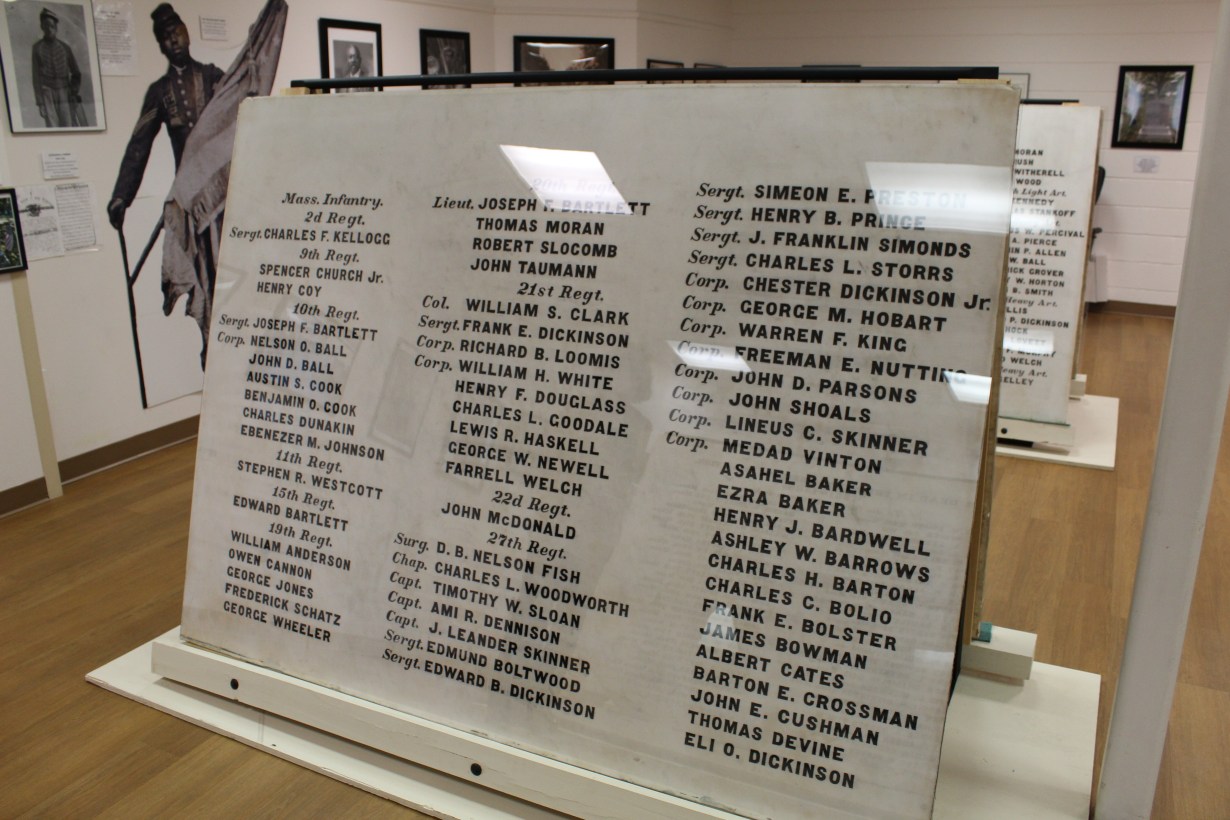 Mass. Infantry.
2d Regt.
Sergt. CHARLES F. KELLOGG
9th Regt.
SPENCER CHURCH Jr.
HENRY COY
10th Regt.
Sergt. JOSEPH F. BARTLETT
Corp. NELSON O. BALL
JOHN D. BALL
AUSTIN S. COOK
BENJAMIN O. COOK
CHARLES DUNAKIN
EBENEZER M. JOHNSON
11th Regt.
STEPHEN R. WESTCOTT
15th Regt.
EDWARD BARTLETT
19th Regt.
WILLIAM ANDERSON
OWEN CANNON
GEORGE JONES
FREDERICK SCHATZ
GEORGE WHEELER
20th Regt.
Lieut. JOSEPH F. BARTLETT
THOMAS MORAN
ROBERT SLOCOMB
JOHN TAUMANN
21st Regt.
Col. WILLIAM S. CLARK
Sergt. FRANK E. DICKINSON
Corp. RICHARD B. LOOMIS
Corp. WILLIAM H. WHITE
HENRY F. DOUGLASS
CHARLES L. GOODALE
LEWIS R. HASKELL
GEORGE W. NEWELL
FARRELL WELCH
22d Regt.
JOHN McDONALD
27th Regt.
Surg. D. B. NELSON FISH
Chap. CHARLES L. WOODWORTH
Capt. TIMOTHY W. SLOAN
Capt. AMI R. DENNISON
Capt. J. LEANDER SKINNER
Sergt. EDMUND BOLTWOOD
Sergt. EDWARD B. DICKINSON
Sergt. SIMEON E. PRESTON
Sergt. HENRY B. PRINCE
Sergt. J. FRANKLIN SIMONDS
Sergt. CHARLES L. STORRS
Corp. CHESTER DICKINSON Jr.
Corp. GEORGE M. HOBART
Corp. WARREN F. KING
Corp. FREEMAN E. NUTTING
Corp. JOHN D. PARSONS
Corp. JOHN SHOALS
Corp. LINEUS C. SKINNER
Corp. MEDAD VINTON
ASAHEL BAKER
EZRA BAKER
HENRY J. BARDWELL
ASHLEY W. BARROWS
CHARLES H. BARTON
CHARLES C. BOLIO
FRANK E. BOLSTER
JAMES BOWMAN
ALBERT CATES
BARTON E. CROSSMAN
JOHN E. CUSHMAN
THOMAS DEVINE
ELI O. DICKINSON
MORAN
USH
WITHERELL
WOOD
Light Art.
KENNEDY
AS STANKOFF
W. PERCIVAL
A. PIERCE
IN P. ALLEN
W. BALL
RICK GROVER
W. HORTON
B. SMITH
Heavy Art.
LLIS
P. DICKINSON
HOCK
LOVETT
F. MURPHY
WELCH
Heavy Art.
KELLEY